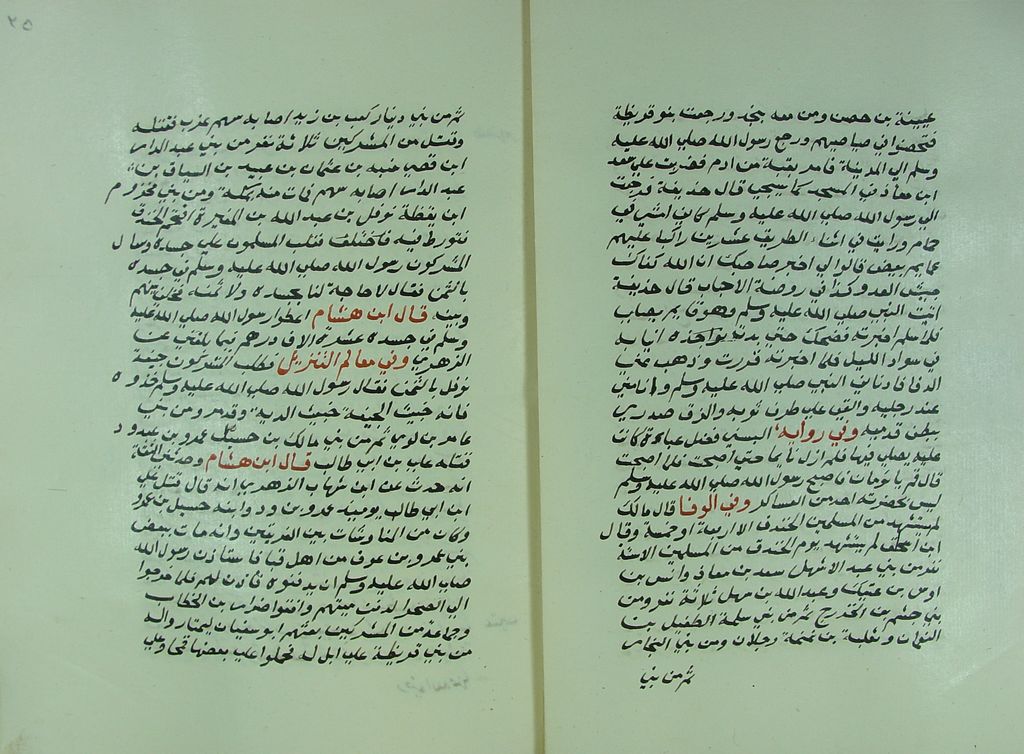 عيينة بن حصن ومن معه بنجد ورجعت بنو قريظة
فتحصنوا في صياصيهم ورجع رسول الله صلى الله عليه
وسلم الى المدينة فامر بقبة من ادم فضربت على سعد
ابن معاذ في المسجد كما سيجى قال حذيفة فرجعت
الى رسول الله صلى الله عليه وسلم كانى امشى في
حمام ورايت في اثناء الطريق عشرين راكبا عليهم
عمايم بيض قالوا لي اخبر صاحبك ان الله كفاك
جيش العدو وكذا في روضة الاحباب قال حذيفة
اتيت النبي صلى الله عليه وسلم وهو قايم يصلى
فلما سلم اخبرته فضحك حتى بدت نواجذه انيابه
في سواد الليل فلما اخبرته قررت وذهب عنى
الدفا فادنانى النبي صلى الله عليه وسلم وانامنى
عند رجليه والقى على طرف ثوبه والزق صدري
ببطن قدميه وفي رواية البسنى فضل عباءة كانت
عليه يصلى فيها فلم ازل نايما حتى اصبحت فلما اصبحت
قال قم يا نومان فاصبح رسول الله صلى الله عليه وسلم
ليس بحضرته احد من العساكر وفي الوفا قال مالك
لم يستشهد من المسلمين الخندق الا اربعة او خمسة وقال
ابن اسحق لم يستشهد يوم الخندق من المسلمين الا ستة
نفر من بني عبد الاشهل سعد بن معاذ وانس بن
اوس بن عتيك وعبد الله بن سهل ثلاثة نفر ومن
بني جشم بن الخزرج ثم من بني سلمة الطفيل بن
النعمان وثعلبة بن غنمة رجلان ومن بني النجار
ثم من بني
٢٥
ثم من بني دينار كعب بن زيد اصابه سهم غرب فقتله
وقتل من المشركين ثلاثة نفر من بني عبد الدار
ابن قصي منبه بن عثمان بن عبيد بن السباق بن
عبد الدار اصابه سهم فمات منه بمكة ومن بني مخزوم
ابن يقظة نوفل بن عبد الله بن المغيرة اقتحم الخندق
فتورط فيه فقتل المسلمون على جسده وسال
المشركون رسول الله صلى الله عليه وسلم في جسده
بالثمن فقال لا حاجة لنا بجسده ولا ثمنه فخلى بينهم
وبينه قال ابن هشام اعطوا رسول الله صلى الله عليه
وسلم في جسده عشرة الاف درهم فيما بلغني عن
الزهري وفي معالم التنزيل فطلب المشركون جيفة
نوفل بالثمن فقال رسول الله صلى الله عليه وسلم خذوه
فانه خبيث الجيفة خبيث الدية وقد مر ومن بني
عامر بن لوى ثم من بني مالك بن حسل عمرو بن عبدود
قتله على بن ابي طالب قال ابن هشام وحدثني الثقة
انه حدث عن ابن شهاب الزهري انه قال قتل على
ابن ابي طالب يوميذ عمرو بن ود وابنه حسيل بن عمرو
وكان من المناوشات بين الفريقين وانه مات بعض
بني عمرو بن عوف من اهل قبا فاستاذن رسول الله
صلى الله عليه وسلم ان يدفنوه فاذن لهم فلما خرجوا
الى الصحرا لدفن ميتهم وافقوا ضرار بن الخطاب
وجماعة من المشركين بعثهم ابو سفيان ليمتار والـ
من بني قريظة على ابل له فحملوا على بعضها قمحا وعلى